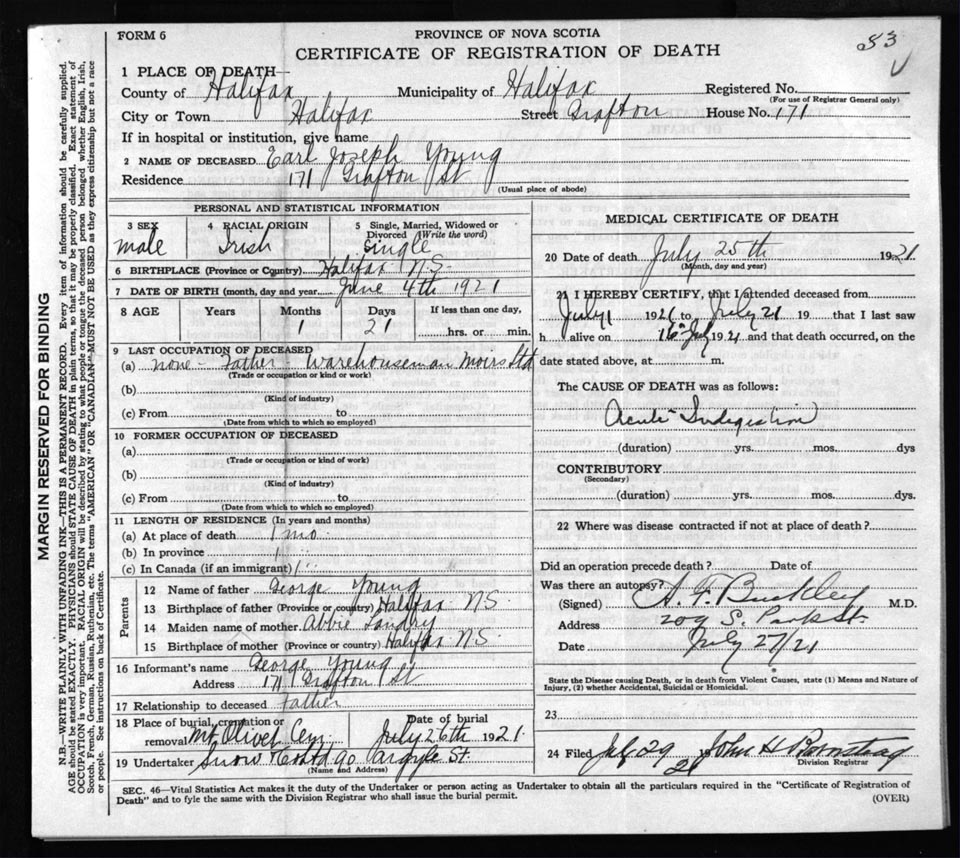 FORM 6
PROVINCE OF NOVA SCOTIA
CERTIFICATE OF REGISTRATION OF DEATH
53
1 PLACE OF DEATH—
County of Halifax Municipality of Halifax Registered No.
(For use of Registrar General only)
City or Town Halifax Street Grafton House No. 171
If in hospital or institution, give name
2 NAME OF DECEASED Earl Joseph Young
Residence 171 Grafton St
(Usual place of abode)
PERSONAL AND STATISTICAL INFORMATION
3 SEX 4 RACIAL ORIGIN 5 Single, Married, Widowed or
Divorced (Write the word)
male Irish Single
6 BIRTHPLACE (Province or Country) Halifax N.S.
7 DATE OF BIRTH (month, day and year) June 4th 1921
8 AGE Years Months Days If less than one day,
1 21 hrs. or min.
9 LAST OCCUPATION OF DECEASED
(a) none - Father - Warehouseman Moirs Ltd
(Trade or occupation or kind or work)
(b)
(Kind of industry)
(c) From to
(Date from which to which so employed)
10 FORMER OCCUPATION OF DECEASED
(a)
(Trade or occupation or kind of work)
(b)
(Kind of industry)
(c) From to
(Date from which to which so employed)
11 LENGTH OF RESIDENCE (In years and months)
(a) At place of death 1 mo.
(b) In province 1 "
(c) In Canada (if an immigrant) 1 "
Parents
12 Name of father George Young
13 Birthplace of father (Province or country) Halifax NS
14 Maiden name of mother Abbie Landry
15 Birthplace of mother (Province or country) Halifax N.S.
16 Informant's name George Young
Address 171 Grafton St
17 Relationship to deceased Father
18 Place of burial, cremation or Date of burial
removal Mt Olivet Cem July 26th 1921
19 Undertaker Snow & Co Ltd 90 Argyle St.
(Name and Address)
MEDICAL CERTIFICATE OF DEATH
20 Date of death July 25th 1921
(Month, day and year)
21 I HEREBY CERTIFY, that I attended deceased from
July 1 1921 to July 21 19 that I last saw
h alive on 16th July 1921 and that death occurred, on the
date stated above, at m.
The CAUSE OF DEATH was as follows:
Acute Indigestion
(duration) yrs. mos. dys
CONTRIBUTORY
(Secondary)
(duration) yrs. mos. dys.
22 Where was disease contracted if not at place of death?
Did an operation precede death? Date of
Was there an autopsy?
(Signed) A. F. Buckley M.D.
Address 209 S. Park St.
Date July 27/21
State the Disease causing Death, or in death from Violent Causes, state (1) Means and Nature of
Injury, (2) whether Accidental, Suicidal or Homicidal.
23
24 Filed July 29 1921 John H Barnstead
Division Registrar
SEC. 46—Vital Statistics Act makes it the duty of the Undertaker or person acting as Undertaker to obtain all the particulars required in the "Certificate of Registration of
Death" and to fyle the same with the Division Registrar who shall issue the burial permit.
(OVER)
MARGIN RESERVED FOR BINDING
N.B.—WRITE PLAINLY WITH UNFADING INK—THIS IS A PERMANENT RECORD. Every item of information should be carefully supplied.
AGE should be stated EXACTLY. PHYSICIANS should STATE CAUSE OF DEATH in plain terms, so that it may be properly classified. Exact statement of
OCCUPATION is very important. RACIAL ORIGIN will be described by stating to what people or tongue the deceased person belonged whether English, Irish,
Scotch, French, German, Russian, Ruthenian, etc. The terms "AMERICAN" OR "CANADIAN" MUST NOT BE USED as they express citizenship but not a race
or people. See instructions on back of Certificate.